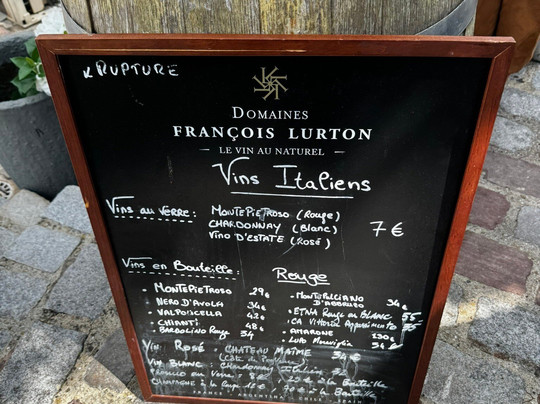 x RUPTURE
DOMAINES
FRANÇOIS LURTON
LE VIN AU NATUREL
Vins Italiens
Vins au Verre : MONTEPIETROSO (Rouge)
CHARDONNAY (Blanc) 7€
VINO D'ESTATE (ROSÉ)
Vins en Bouteille :
- MONTEPIETROSO 29€
NERO D'AVOLA 34€
- VALPOLICELLA 42€
- CHIANTI 48€
- BARDOLINO Rouge 34
Rouge
- MONTEPULCIANO D'ABRUZZO 34€
- ETNA Rouge ou BLANC 55
- CA Vittoria Appassimento 55€
- AMARONE 130€
- LUPO 34€
VIN ROSÉ - CHATEAU MAÏME 34€
(Côte de Provence)
VIN BLANC : CHARDONNAY Italien 32
PROSECCO au Verre = 8€ / 39€ la Bouteille
CHAMPAGNE à la Coupe 12€ / 70€ la Bouteille
FRANCE - ARGENTINA - CHILE - SPAIN